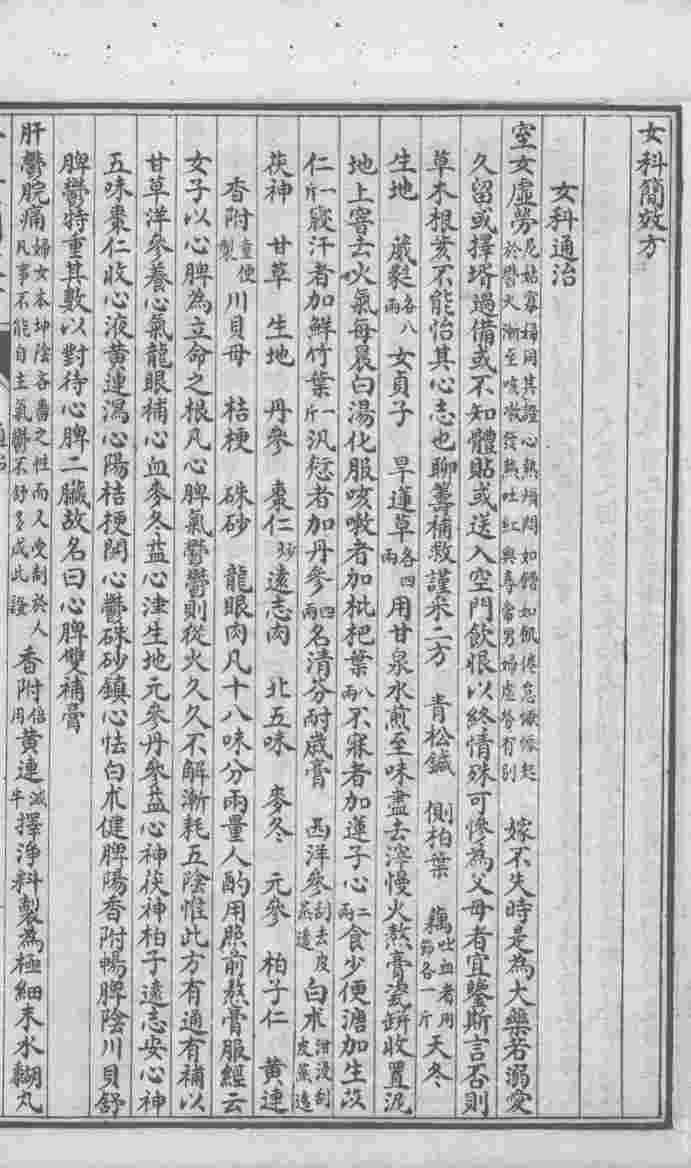 女科簡效方
女科通治
室女虛勞尼姑寡婦同其證心熱煩悶如饑如飢倦怠懶惰起於鬱火漸至咳嗽發熱吐紅與尋常男婦虛勞有別嫁不失時是為大藥若溺愛
久留或擇壻過備或不知體貼或送入空門飲恨以終情殊可慘為父母者宜鑒斯言否則
草木根荄不能怡其心志也聊籌補救謹采二方 青松鍼 側柏葉 藕吐血者用節各一斤天冬
生地 葳蕤各八兩女貞子 旱蓮草各四兩用甘泉水煎至味盡去滓慢火熬膏瓷缾收置泥
地上窨去火氣每晨白湯化服咳嗽者加枇杷葉八兩不寐者加蓮子心二兩食少便溏加生苡
仁一斤寢汗者加鮮竹葉一斤汎愆者加丹參四兩名清芬耐歲膏 西洋參刮去皮蒸透白朮泔浸刮皮蒸透
茯神 甘草 生地 丹參 棗仁炒遠志肉 北五味 麥冬 元參 柏子仁 黃連
香附童便製川貝母 桔梗 硃砂 龍眼肉凡十八味分兩量人酌用照前熬膏服經云
女子以心脾為立命之根凡心脾氣鬱鬱則從火久久不解漸耗五陰惟此方有通有補以
甘草洋參養心氣龍眼補心血麥冬益心津生地元參丹參益心神茯神柏子遠志安心神
五味棗仁收心液黃連瀉心陽桔梗開心鬱硃砂鎮心怯白朮健脾陽香附暢脾陰川貝舒
脾鬱特重其數以對待心脾二臟故名曰心脾雙補膏
肝鬱脘痛婦女本坤陰吝嗇之性而又受制於人凡事不能自主氣鬱不舒多成此證香附倍用黃連減半擇淨料製為極細末水糊丸